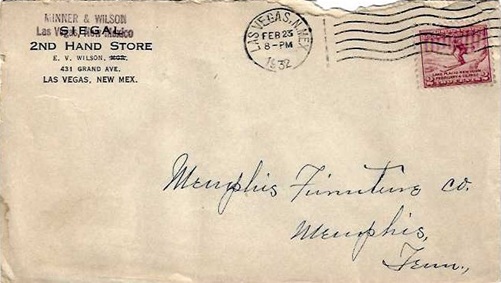 MINNER & WILSON
Las Vegas, New Mexico
SIEGAL
2ND HAND STORE
E. V. WILSON, MGR.
431 GRAND AVE.
LAS VEGAS, NEW MEX.
LAS VEGAS, N. MEX.
FEB 23
8-PM
1932
2 2
Memphis Furniture Co.
Memphis,
Tenn,